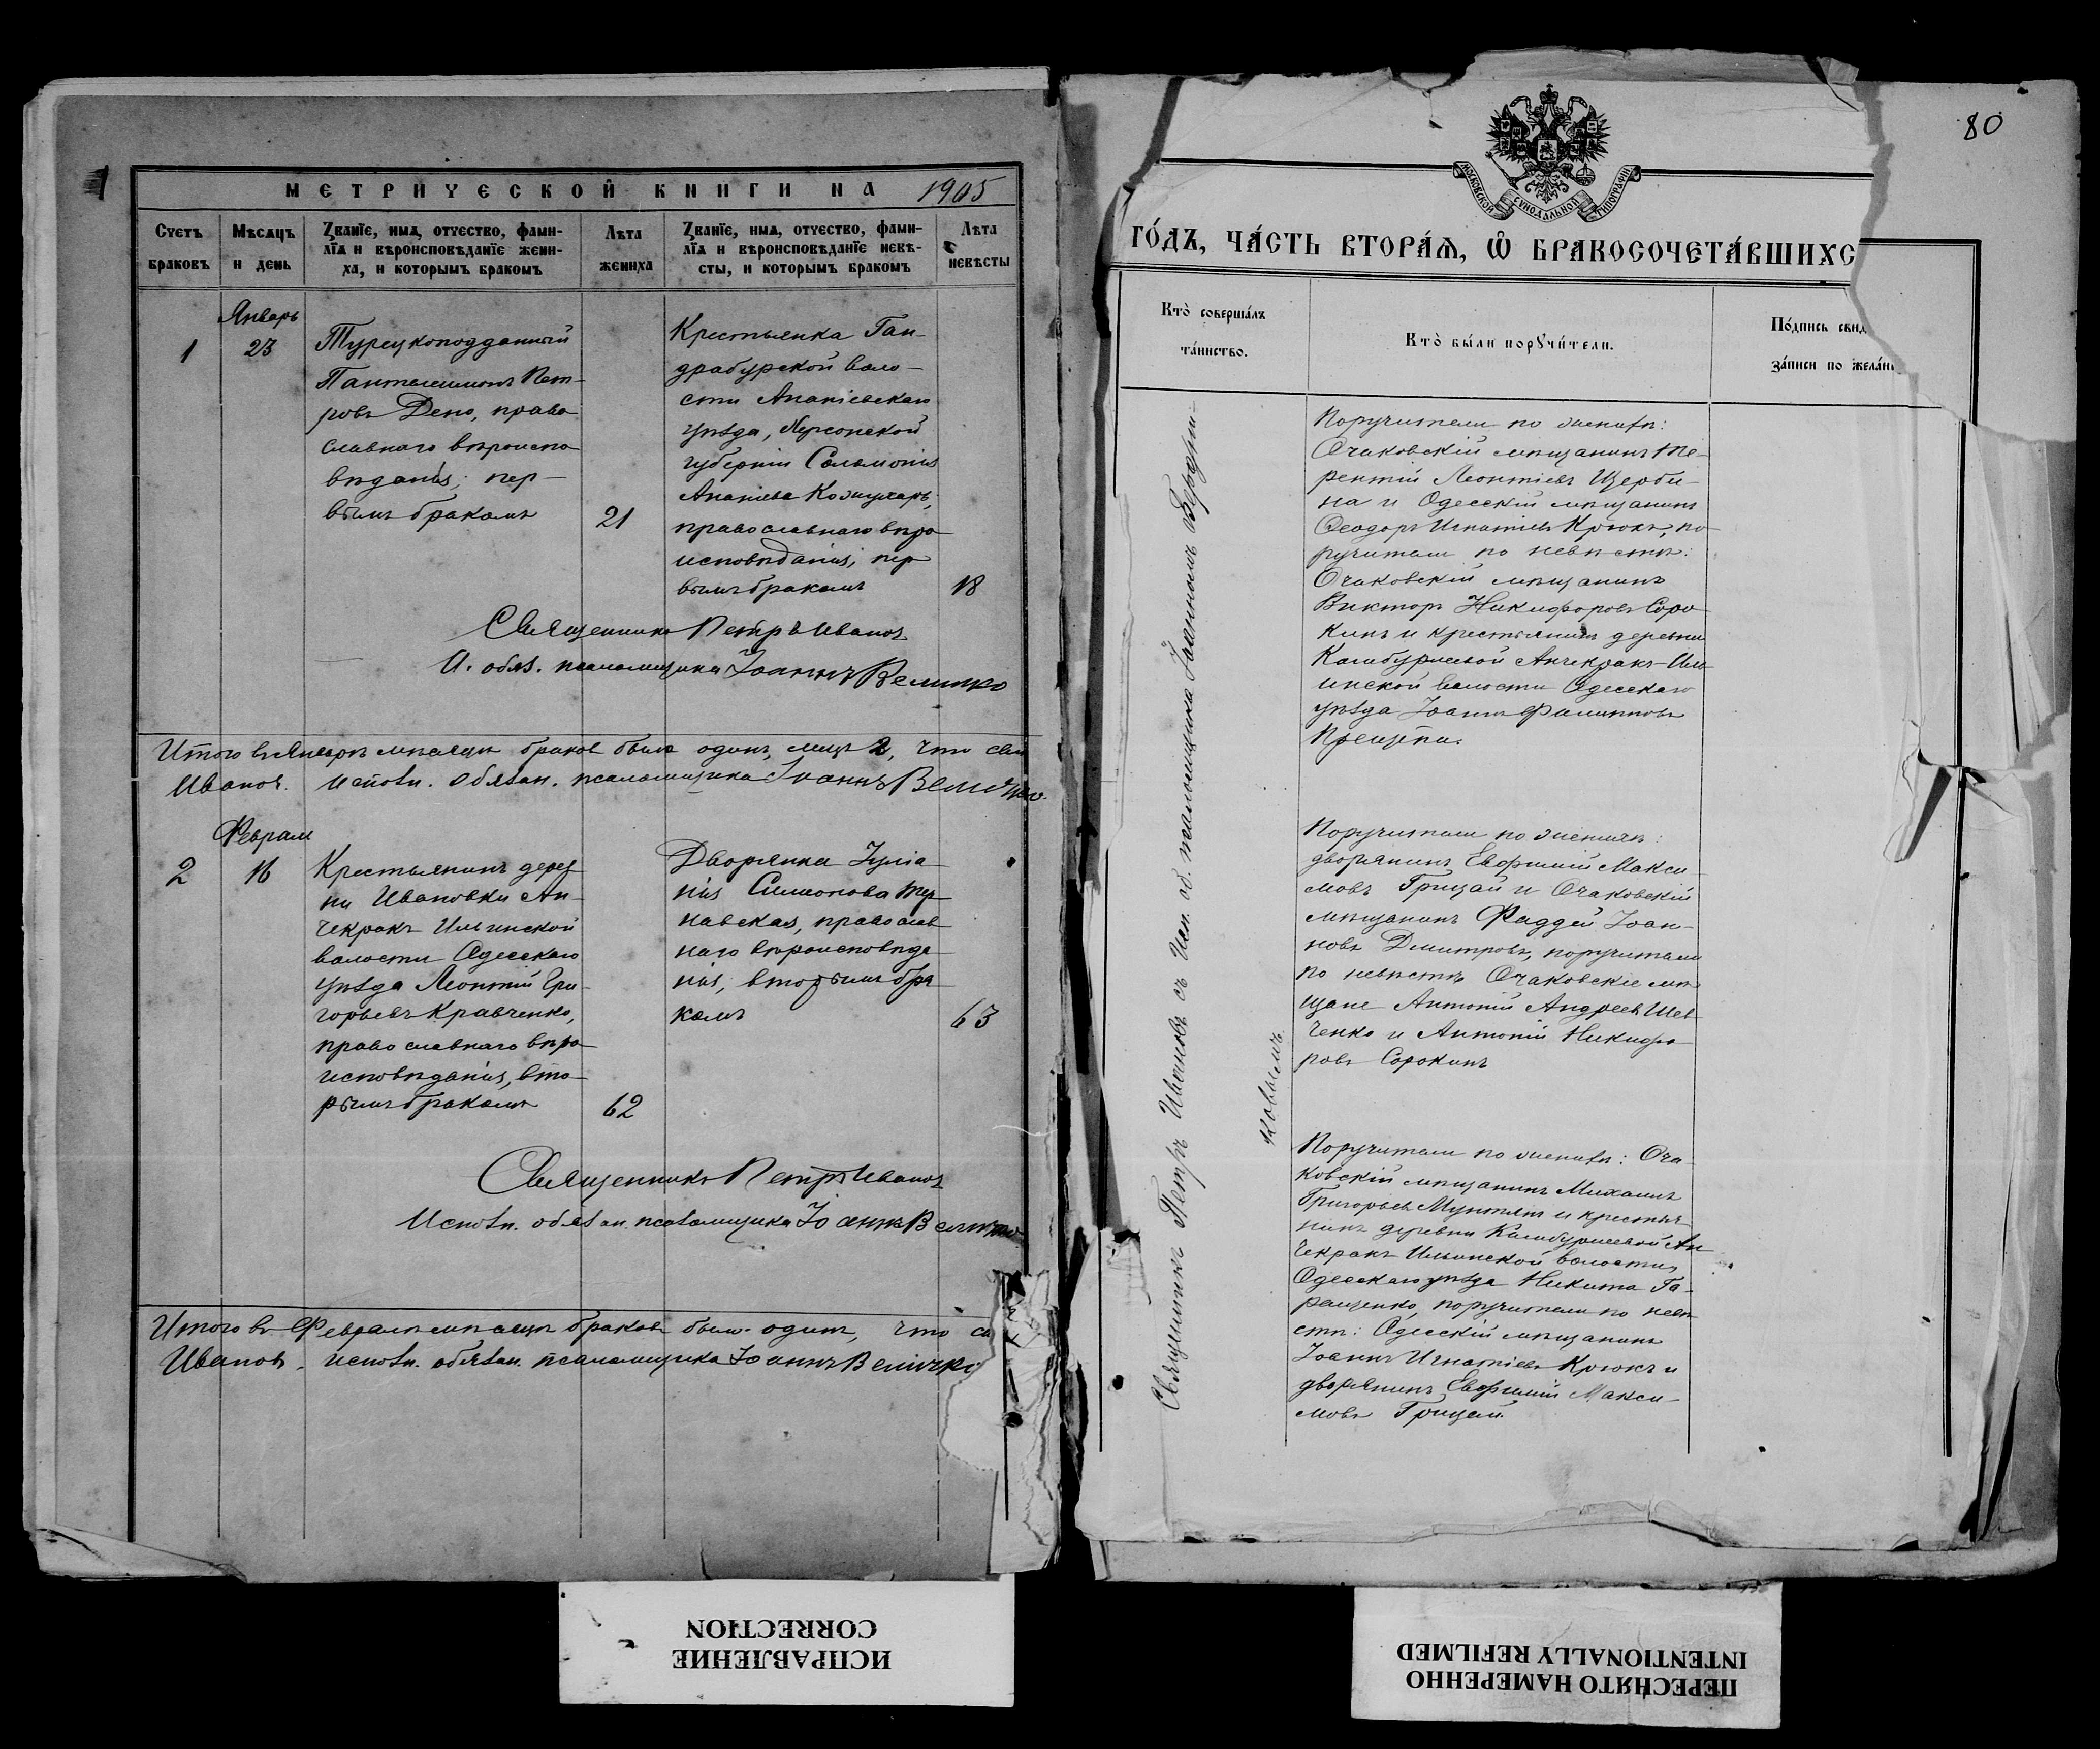 МЕТРИЧЕСКОЙ КНИГИ НА 1905
Счетъ браковъ
Мѣсяцъ и день
Званїе, имѧ, отчество, фами-
лїѧ и вѣроисповѣданїе жени-
ха, и которымъ бракомъ
Лѣта жениха
Званїе, имѧ, отчество, фами-
лїѧ и вѣроисповѣданїе невѣ-
сты, и которымъ бракомъ
Лѣта невѣсты
Январь
1
23
Турецкоподданный
Пантелеимонъ Пет-
ровъ Дено, право
славнаго вѣроиспо
вѣданія; пер-
вымъ бракомъ
21
Крестьянка Ган-
драбурской воло-
сти Ананіевскаго
уѣзда, Херсонской
губерніи Соломонія
Ананіева Кожухарь,
православнаго вѣро
исповѣданія; пер
вымъ бракомъ
18
Священникъ Петръ Ивановъ
И. обяз. псаломщика Іоаннъ Величко
Итого въ Январѣ мѣсяцѣ браковъ было одинъ, лицъ 2, что сви
Ивановъ. Исполн. обязан. псаломщика Іоаннъ Величко.
Февраля
2
16
Крестьянинъ дерев
ни Ивановки Ан-
чекракъ Ильинской
волости Одесскаго
уѣзда Леонтій Гри-
горьевъ Кравченко,
православнаго вѣро
исповѣданія, вто-
рымъ бракомъ
62
Дворянка Іуліа
нія Симеонова Тер
навская, православ
наго вѣроисповѣда
нія, вторымъ бра
комъ
63
Священникъ Петръ Ивановъ
Исполн. обязан. псаломщика Іоаннъ Величко
Итого въ Февралѣ мѣсяцѣ браковъ было одинъ, что св
Ивановъ. исполн. обязан. псаломщика Іоаннъ Величко
80
МОСКОВСКОЙ СѴНОДАЛЬНОЙ ТИПОГРАФІИ
ГО́ДЪ, ЧА́СТЬ ВТОРА́Ѧ, Ѡ҆ БРАКОСОЧЕТА́ВШИХС
Кто̀ соверша́лъ
та́инство.
Кто̀ бы́ли порꙋчи́тели.
По́дпись свид
за́писи по жела́н
Священникъ Петръ Ивановъ съ Исп. об. псаломщика Іоанномъ
ковымъ
Поручители по женихѣ:
Очаковскій мѣщанинъ Те-
рентій Леонтіевъ Щерби-
на и Одесскій мѣщанинъ
Ѳеодоръ Игнатіевъ Крюкъ, по
ручители по невѣстѣ:
Очаковскій мѣщанинъ
Викторъ Никифоровъ Соро
кинъ и крестьянинъ деревни
Камбурлеевой Анчекракъ-Иль
инской волости Одесскаго
уѣзда Іоаннъ Филипповъ
Поручители по женихѣ:
дворянинъ Евфимій Макси
мовъ Грицай и Очаковскій
мѣщанинъ Фаддей Іоан-
новъ Дмитровъ, поручители
по невѣстѣ Очаковскіе мѣ
щане Антоній Андреевъ Шев
ченко и Антоній Никифо
ровъ Сорокинъ
Поручители по женихѣ: Оча
ковскій мѣщанинъ Михаилъ
Григорьевъ Мунтянъ и крестья
нинъ деревни Камбурлеевой Ан
чекракъ Ильинской волости,
Одесскаго уѣзда Никита Га-
ращенко, поручители по невѣ
стѣ: Одесскій мѣщанинъ
Іоаннъ Игнатіевъ Крюкъ и
дворянинъ Евфимій Макси-
мовъ Грицай.
ИСПРАВЛЕНИЕ
CORRECTION
ПЕРЕСНЯТО НАМЕРЕННО
INTENTIONALLY REFILMED